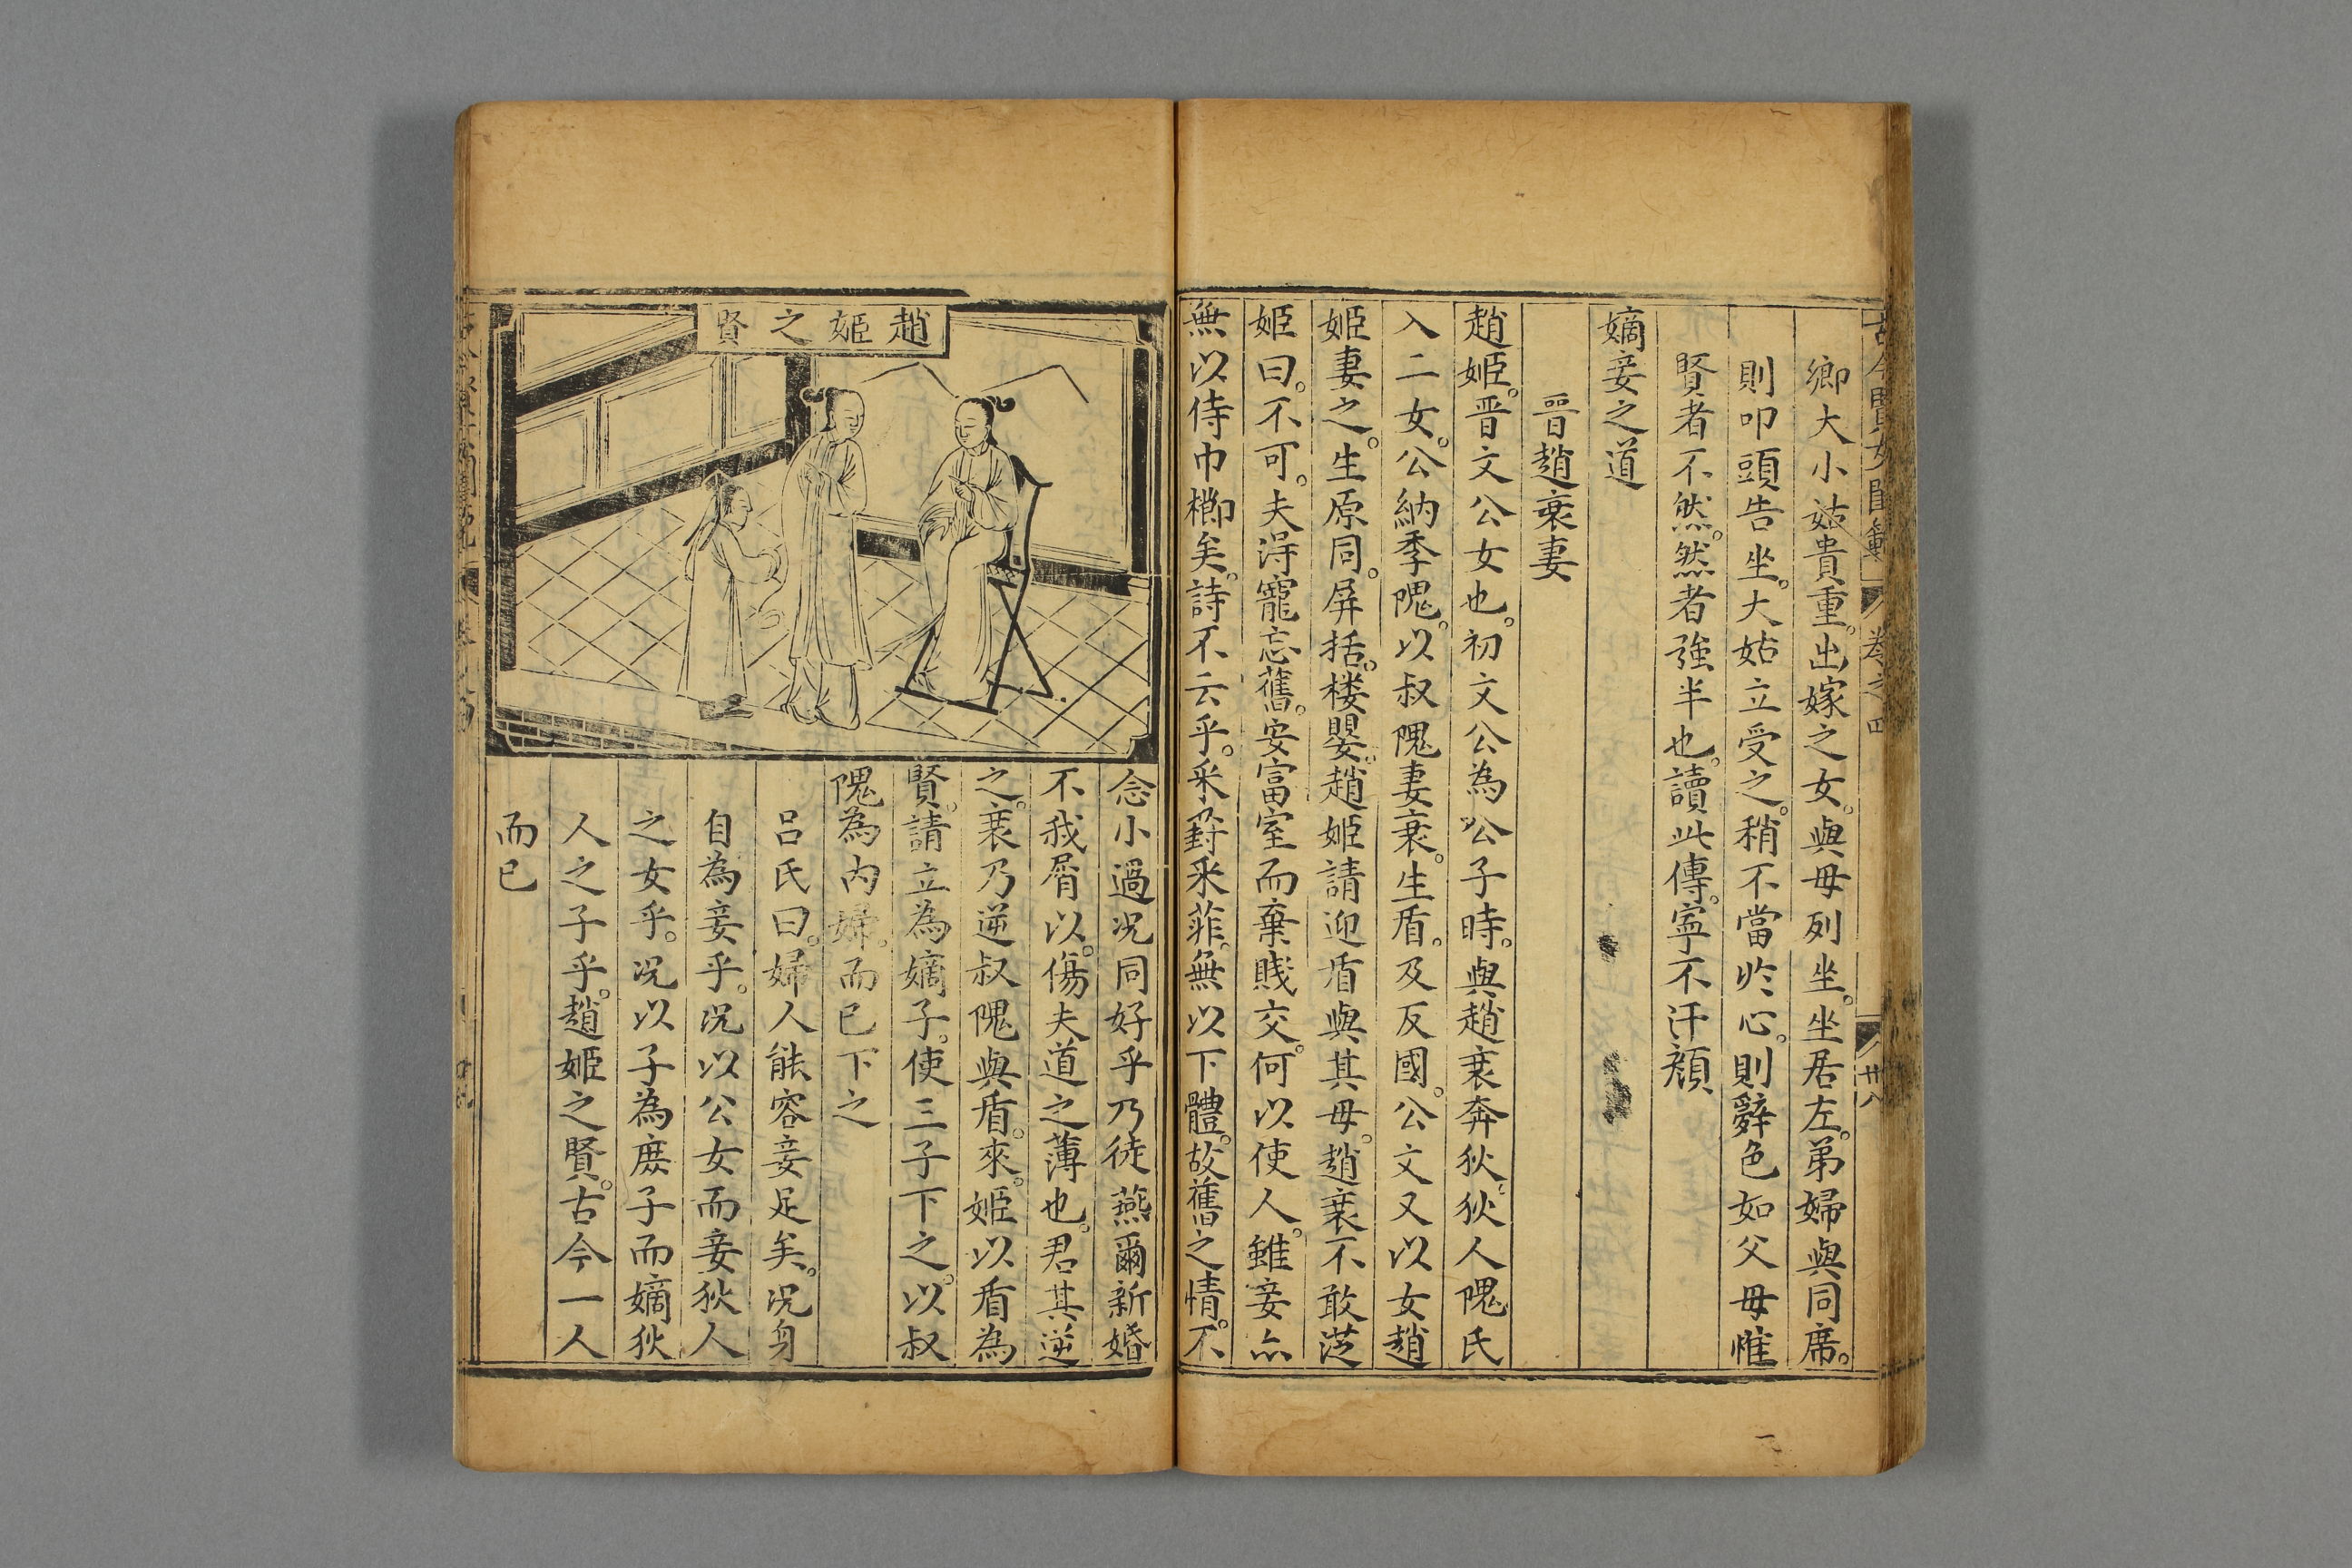 古今賢女閨範 卷之四 廿八
鄉大小姑貴重。出嫁之女。與母列坐。坐居左。弟婦與同席。
則叩頭告坐。大姑立受之。稍不當於心。則辭色如父母惟
賢者不然。然者強半也。讀此傳。寧不汗顏
嫡妾之道
晉趙衰妻
趙姬。晋文公女也。初文公為公子時。與趙衰奔狄。狄人隗氏
入二女。公納季隗。以叔隗妻衰。生盾。及反國。公文又以女趙
姬妻之。生原同。屏括。楼嬰。趙姬請迎盾與其母。趙衰不敢從
姬曰。不可。夫淂寵忘舊。安富室而棄賤交。何以使人。雖妾亦
無以侍巾櫛矣。詩不云乎。采葑采菲。無以下體。故舊之情。不
趙姬之賢
念小過况同好乎乃徒燕爾新婚
不我屑以。傷夫道之薄也。君其逆
之。衰乃逆叔隗與盾。來。姬以盾為
賢。請立為嫡子。使三子下之。以叔
隗為内婦。而已下之
吕氏曰。婦人能容妾足矣。况身
自為妾乎。况以公女而妾狄人
之女乎。况以子為庶子而嫡狄
人之子乎。趙姬之賢。古今一人
而已